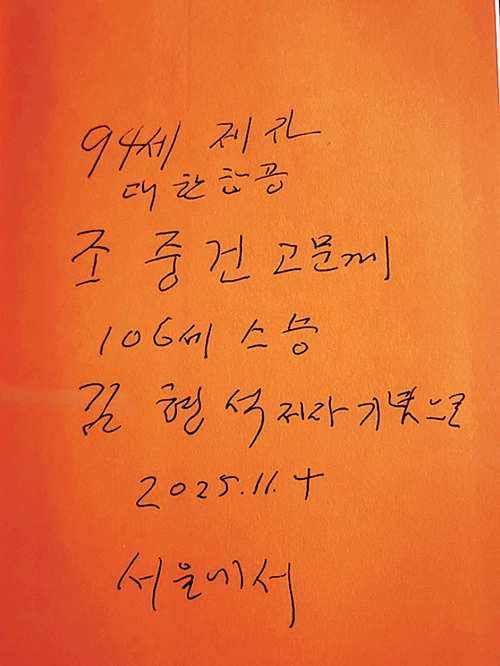 94세 제자
대한항공
조중건 고문께
106세 스승
김형석 저자 기쁨으로
2025.11.4
서울에서